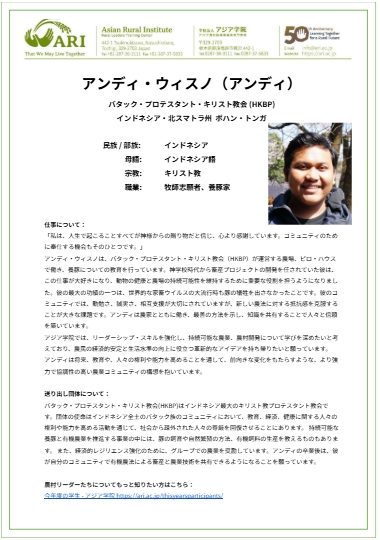 ARI
That We May Live Together
Asian Rural Institute
Rural Leaders Training Center
学校法人 アジア学院
50
アンディ・ウィスノ（アンディ）
バタック・プロテスタント・キリスト教会 (HKBP)
インドネシア・北スマトラ州 ポハン・トンガ
民族 / 部族: インドネシア
母語: インドネシア語
宗教: キリスト教
職業: 牧師志願者、養豚家
仕事について：
「私は、人生で起こることすべてが神様からの贈り物だと信じ、心より感謝しています。コミュニティのため
に奉仕する機会もそのひとつです。」
アンディ・ウィスノは、バタック・プロテスタント・キリスト教会（HKBP）が運営する農場、ビロ・ハウス
で働き、養豚についての教育を行っています。神学校時代から畜産プロジェクトの開発を任されていた彼は、
この仕事が大好きになり、動物の健康と農場の持続可能性を維持するために重要な役割を担うようになりまし
た。彼の最大の功績の一つは、世界的な家畜ウイルスの大流行時も豚の犠牲を出さなかったことです。彼のコ
ミュニティでは、勤勉さ、誠実さ、相互支援が大切にされていますが、新しい農法に対する抵抗感を克服する
ことが大きな課題です。アンディは農家とともに働き、最善の方法を示し、知識を共有することで人々と信頼
を築いています。
アジア学院では、リーダーシップ・スキルを強化し、持続可能な農業、農村開発について学びを深めたいと考
えており、農民の経済的安定と生活水準の向上に役立つ革新的なアイデアを持ち帰りたいと願っています。
アンディは将来、教育や、人々の権利や能力を高めることを通して、前向きな変化をもたらすような、より強
力で協調性の高い農業コミュニティの構想を抱いています。
送り出し団体について：
バタック・プロテスタント・キリスト教会(HKBP)はインドネシア最大のキリスト教プロテスタント教会で
す。団体の使命はインドネシア全土のバタック族のコミュニティにおいて、教育、経済、健康に関する人々の
権利や能力を高める活動を通じて、社会から疎外された人々の尊厳を回復させることにあります。 持続可能な
養豚と有機農業を推進する事業の中には、豚の飼育や自然繁殖の方法、有機飼料の生産を教えるものもありま
す。 また、経済的レジリエンス強化のために、グループでの農業を奨励しています。アンディの卒業後は、彼
が自分のコミュニティで有機農法による養豚と農業技術を共有できるようになることを願っています。
農村リーダーたちについてもっと知りたい方はこちら：
今年度の学生 - アジア学院 https://ari.ac.jp/thisyearsparticipants/